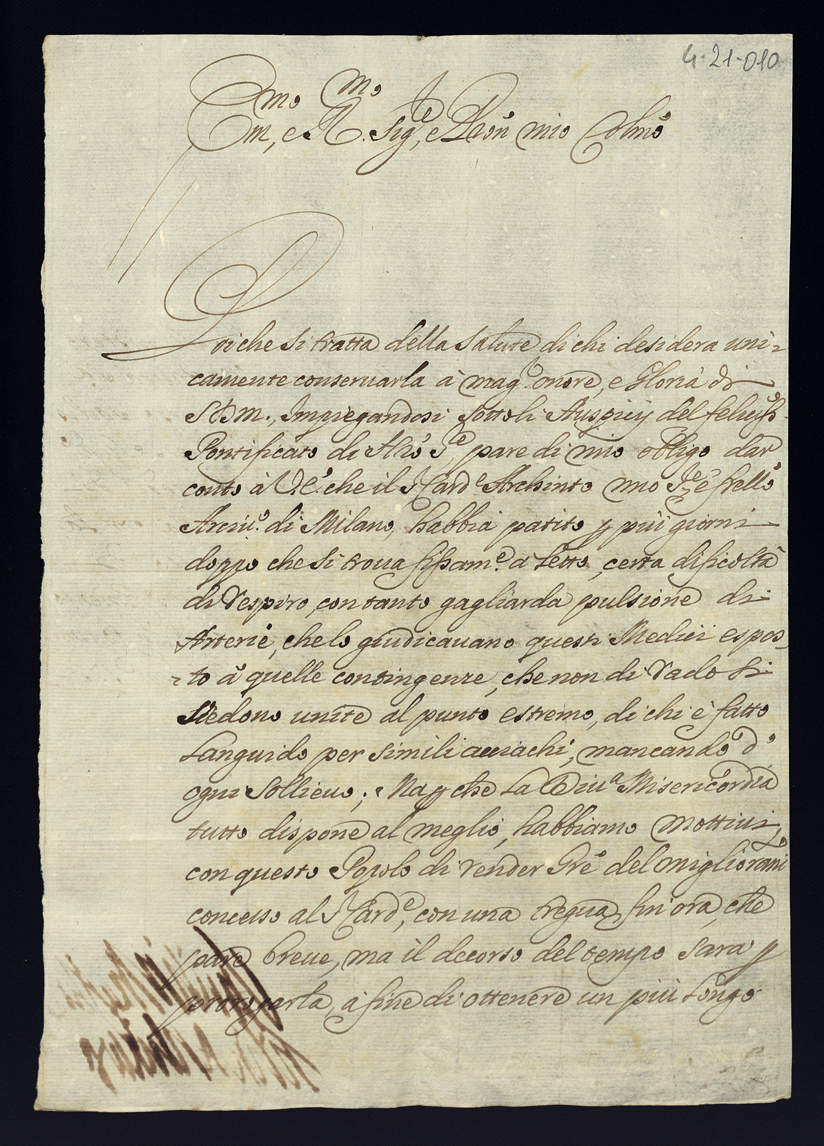 4-21-010
Em.mo, e R.mo Sig.re, e Pron mio Colmo
Poiche si tratta della salute di chi desidera uni-
camente conseruarla à mag.r onore, e Gloria di
S. D. M., Impiegandosi sotto li Auspicij del feliciss.o
Pontificato di pare di mio obligo dar
conto à V. E. che il S.r Card.e Archinto mio S.re e frello
Arciu.o di Milano, habbia patito p più giorni
doppo che si troua fissam.e à Letto, certa dificoltà
di respiro, con tanto gagliarda pulsione di
Arterie, che lo giudicauano questi Medici espos-
to à quelle contingenze, che non di rado si
uedono unite al punto estremo, di chi è fatto
Languido per simili acciachi, mancando d'
ogni sollieuo; Ma p che La Diu.a Misericordia
tutto dispone al meglio, habbiamo mottiui,
con questo Popolo di render Gré del miglioram.to
concesso al S.r Card.e, con una tregua fin ora, che
pare breue, ma il decorso del tempo sara p
prorogarla, à fine di ottenere un più Longo